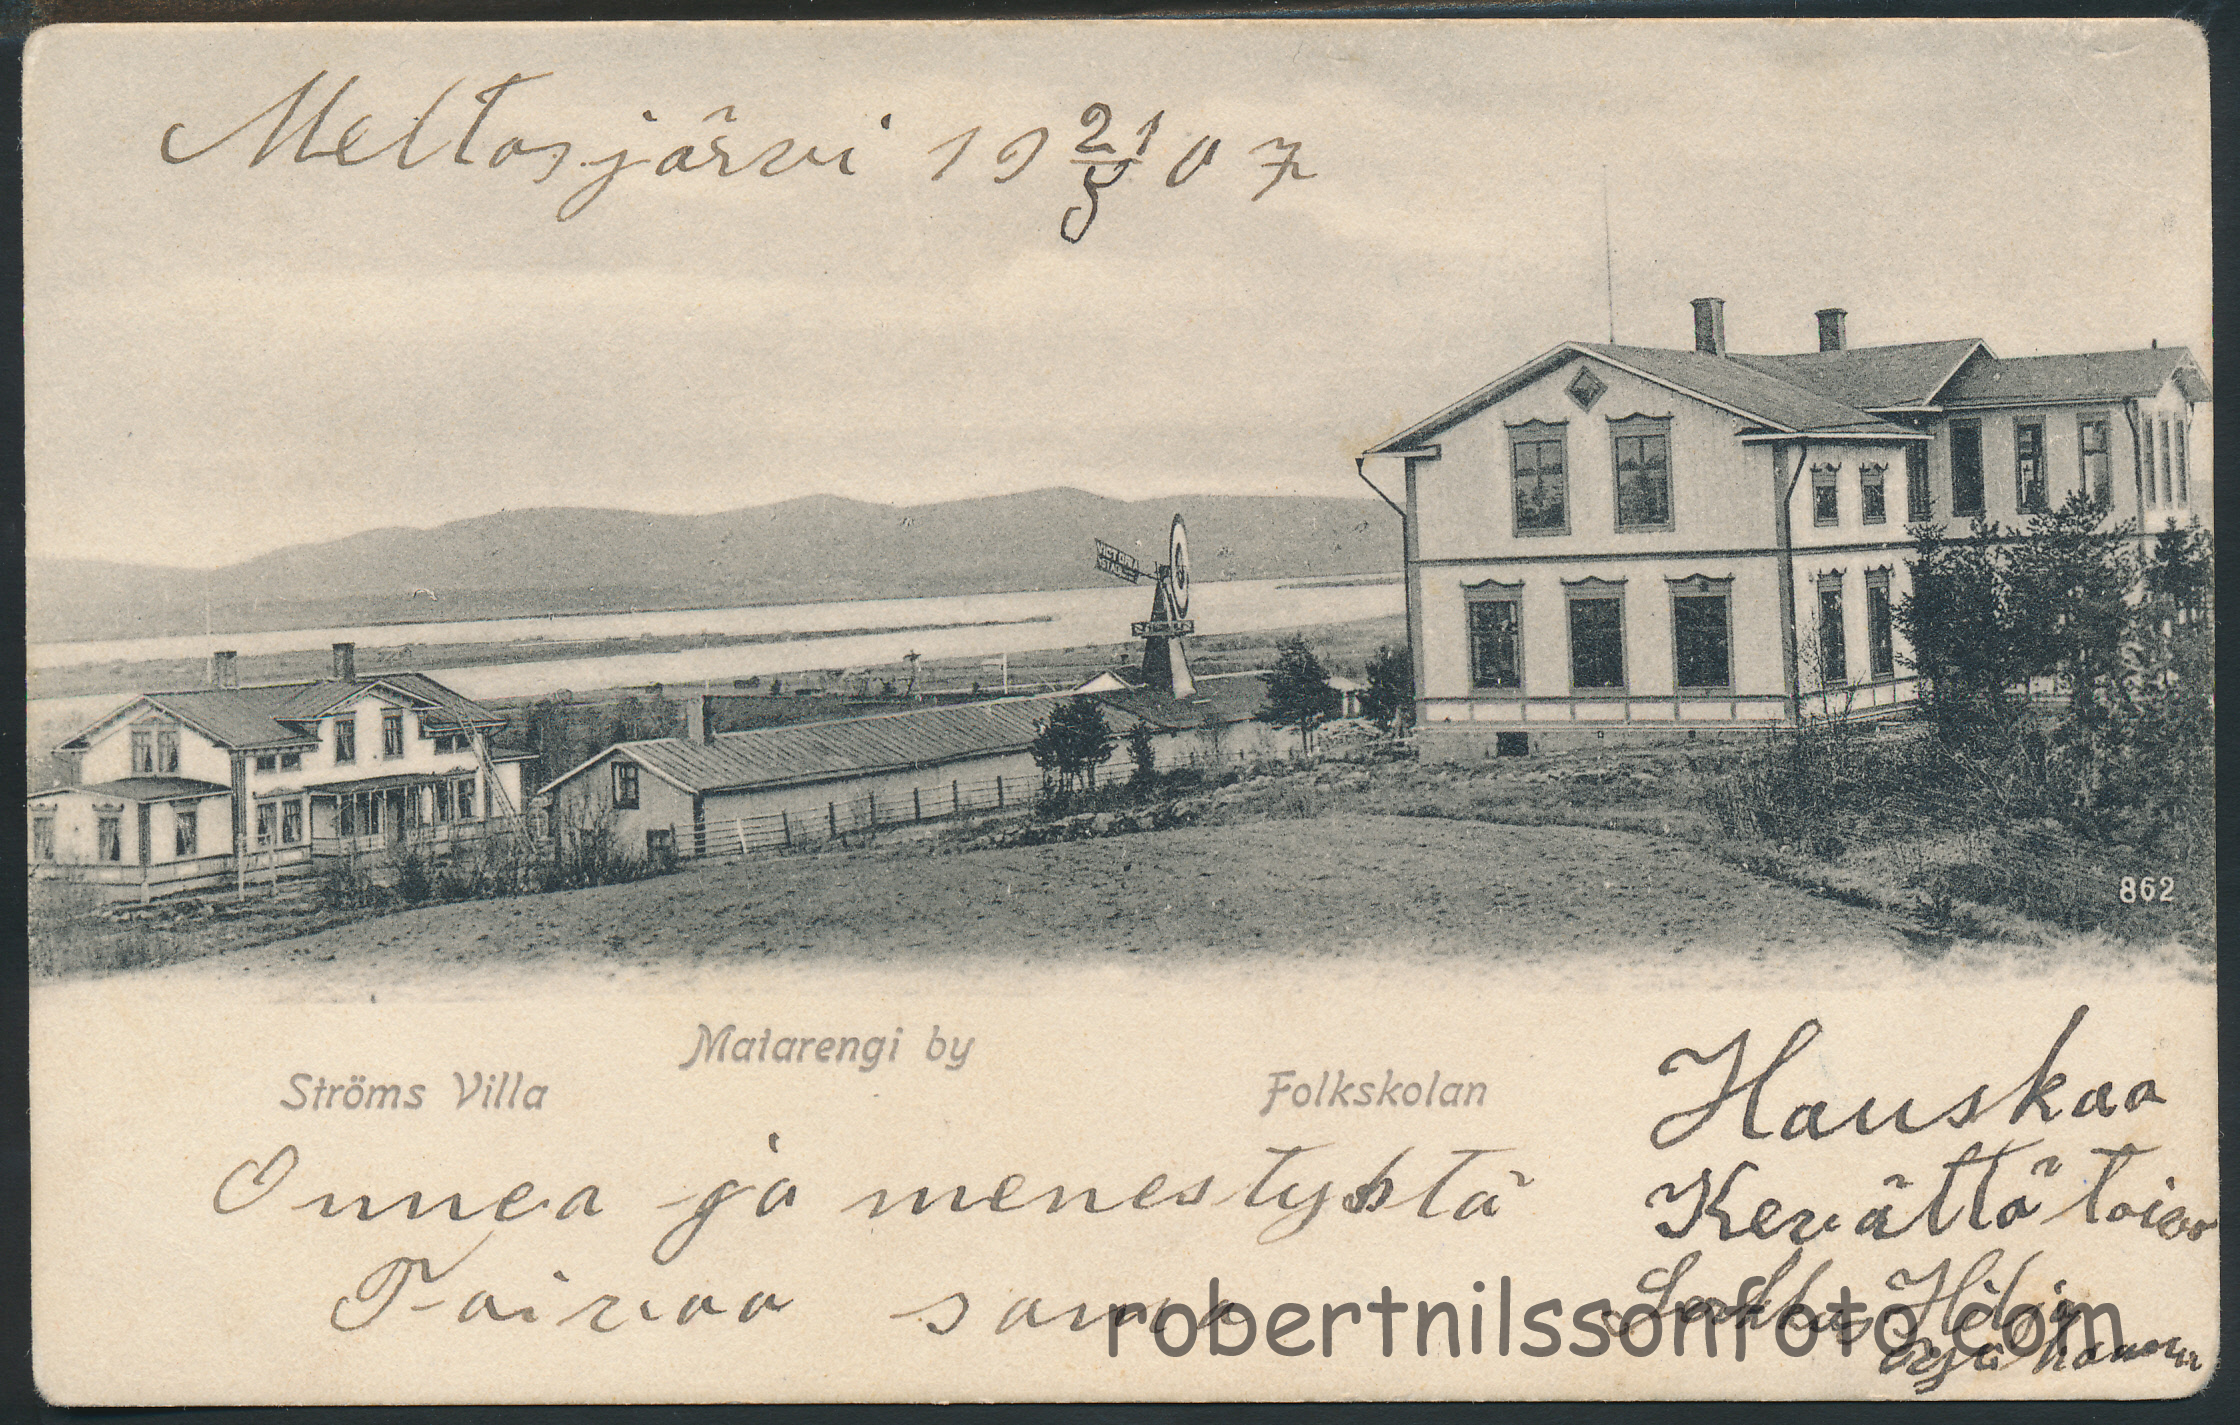 Meltosjärvi 19 21/5 07
VICTORIA
862
Matarengi by
Ströms Villa
Folkskolan
Hauskaa
Kevättä toivoo
Onnea ja menestystä
Toivoo sama
Hilja
robertnilssonfoto.com